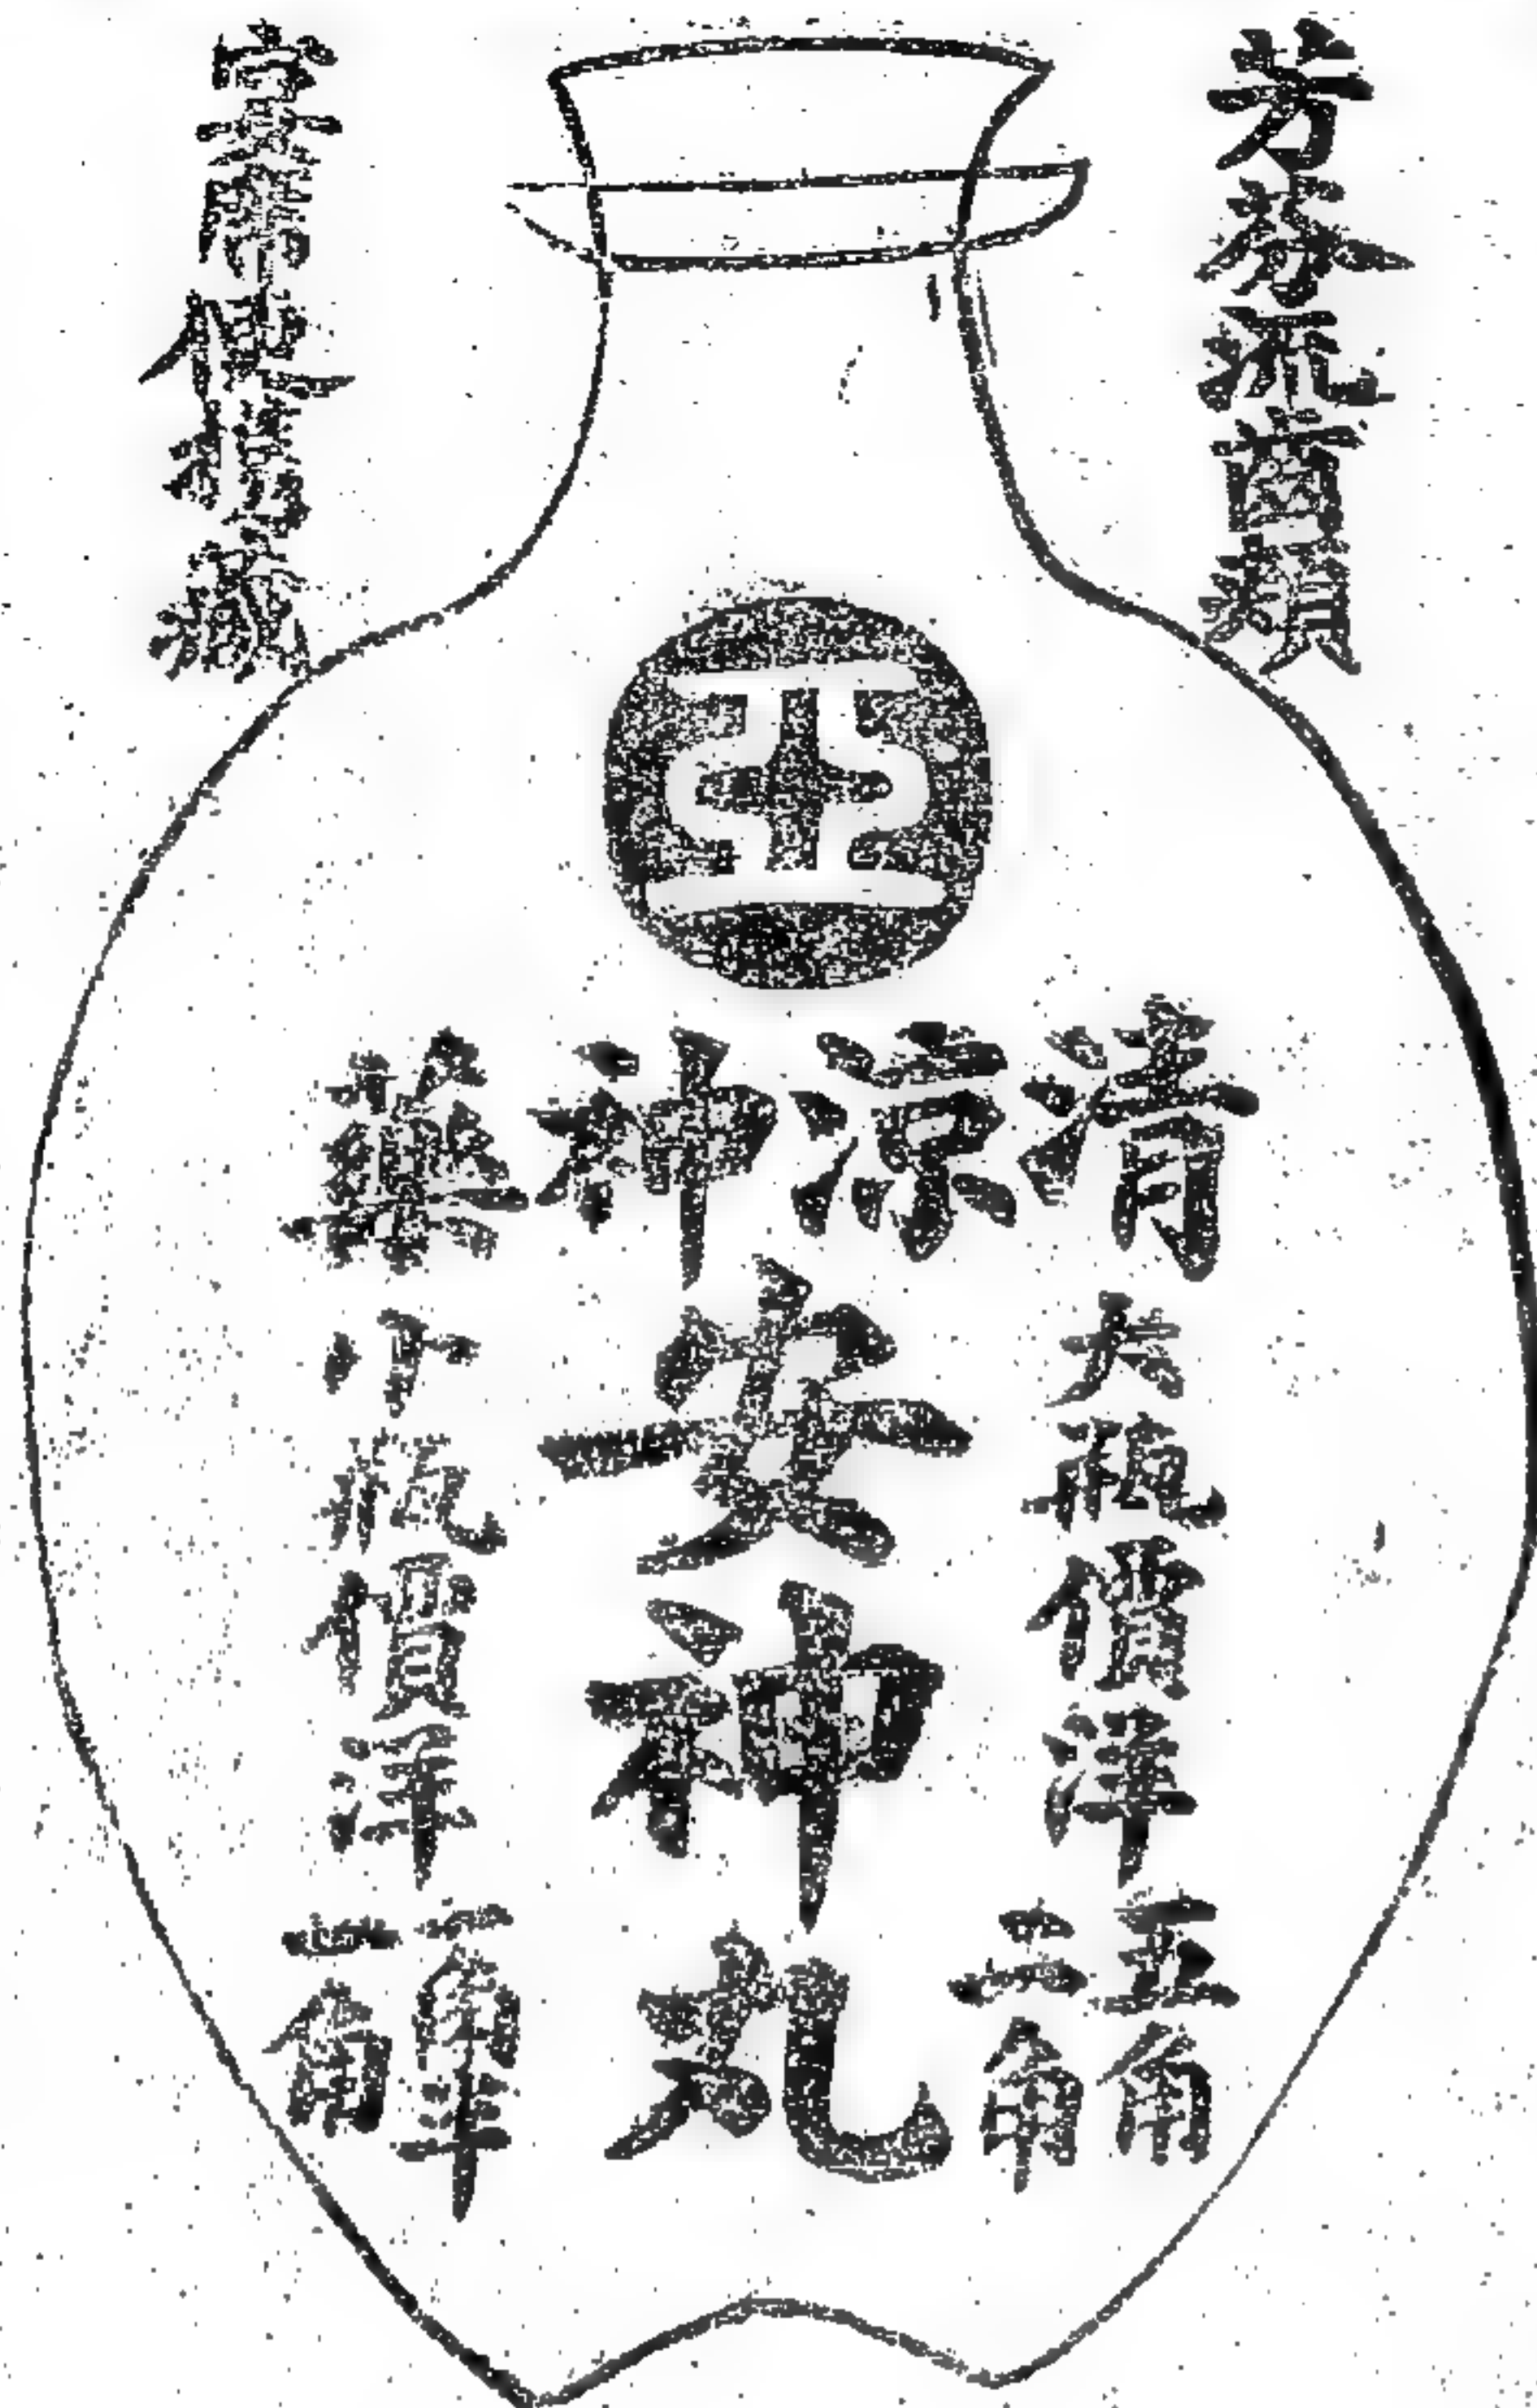 芳芬流齒頰
宴席便携藏
亞
清涼神藥
安神丸
大瓶價洋
五角
二角
小瓶價洋
一角半
一角